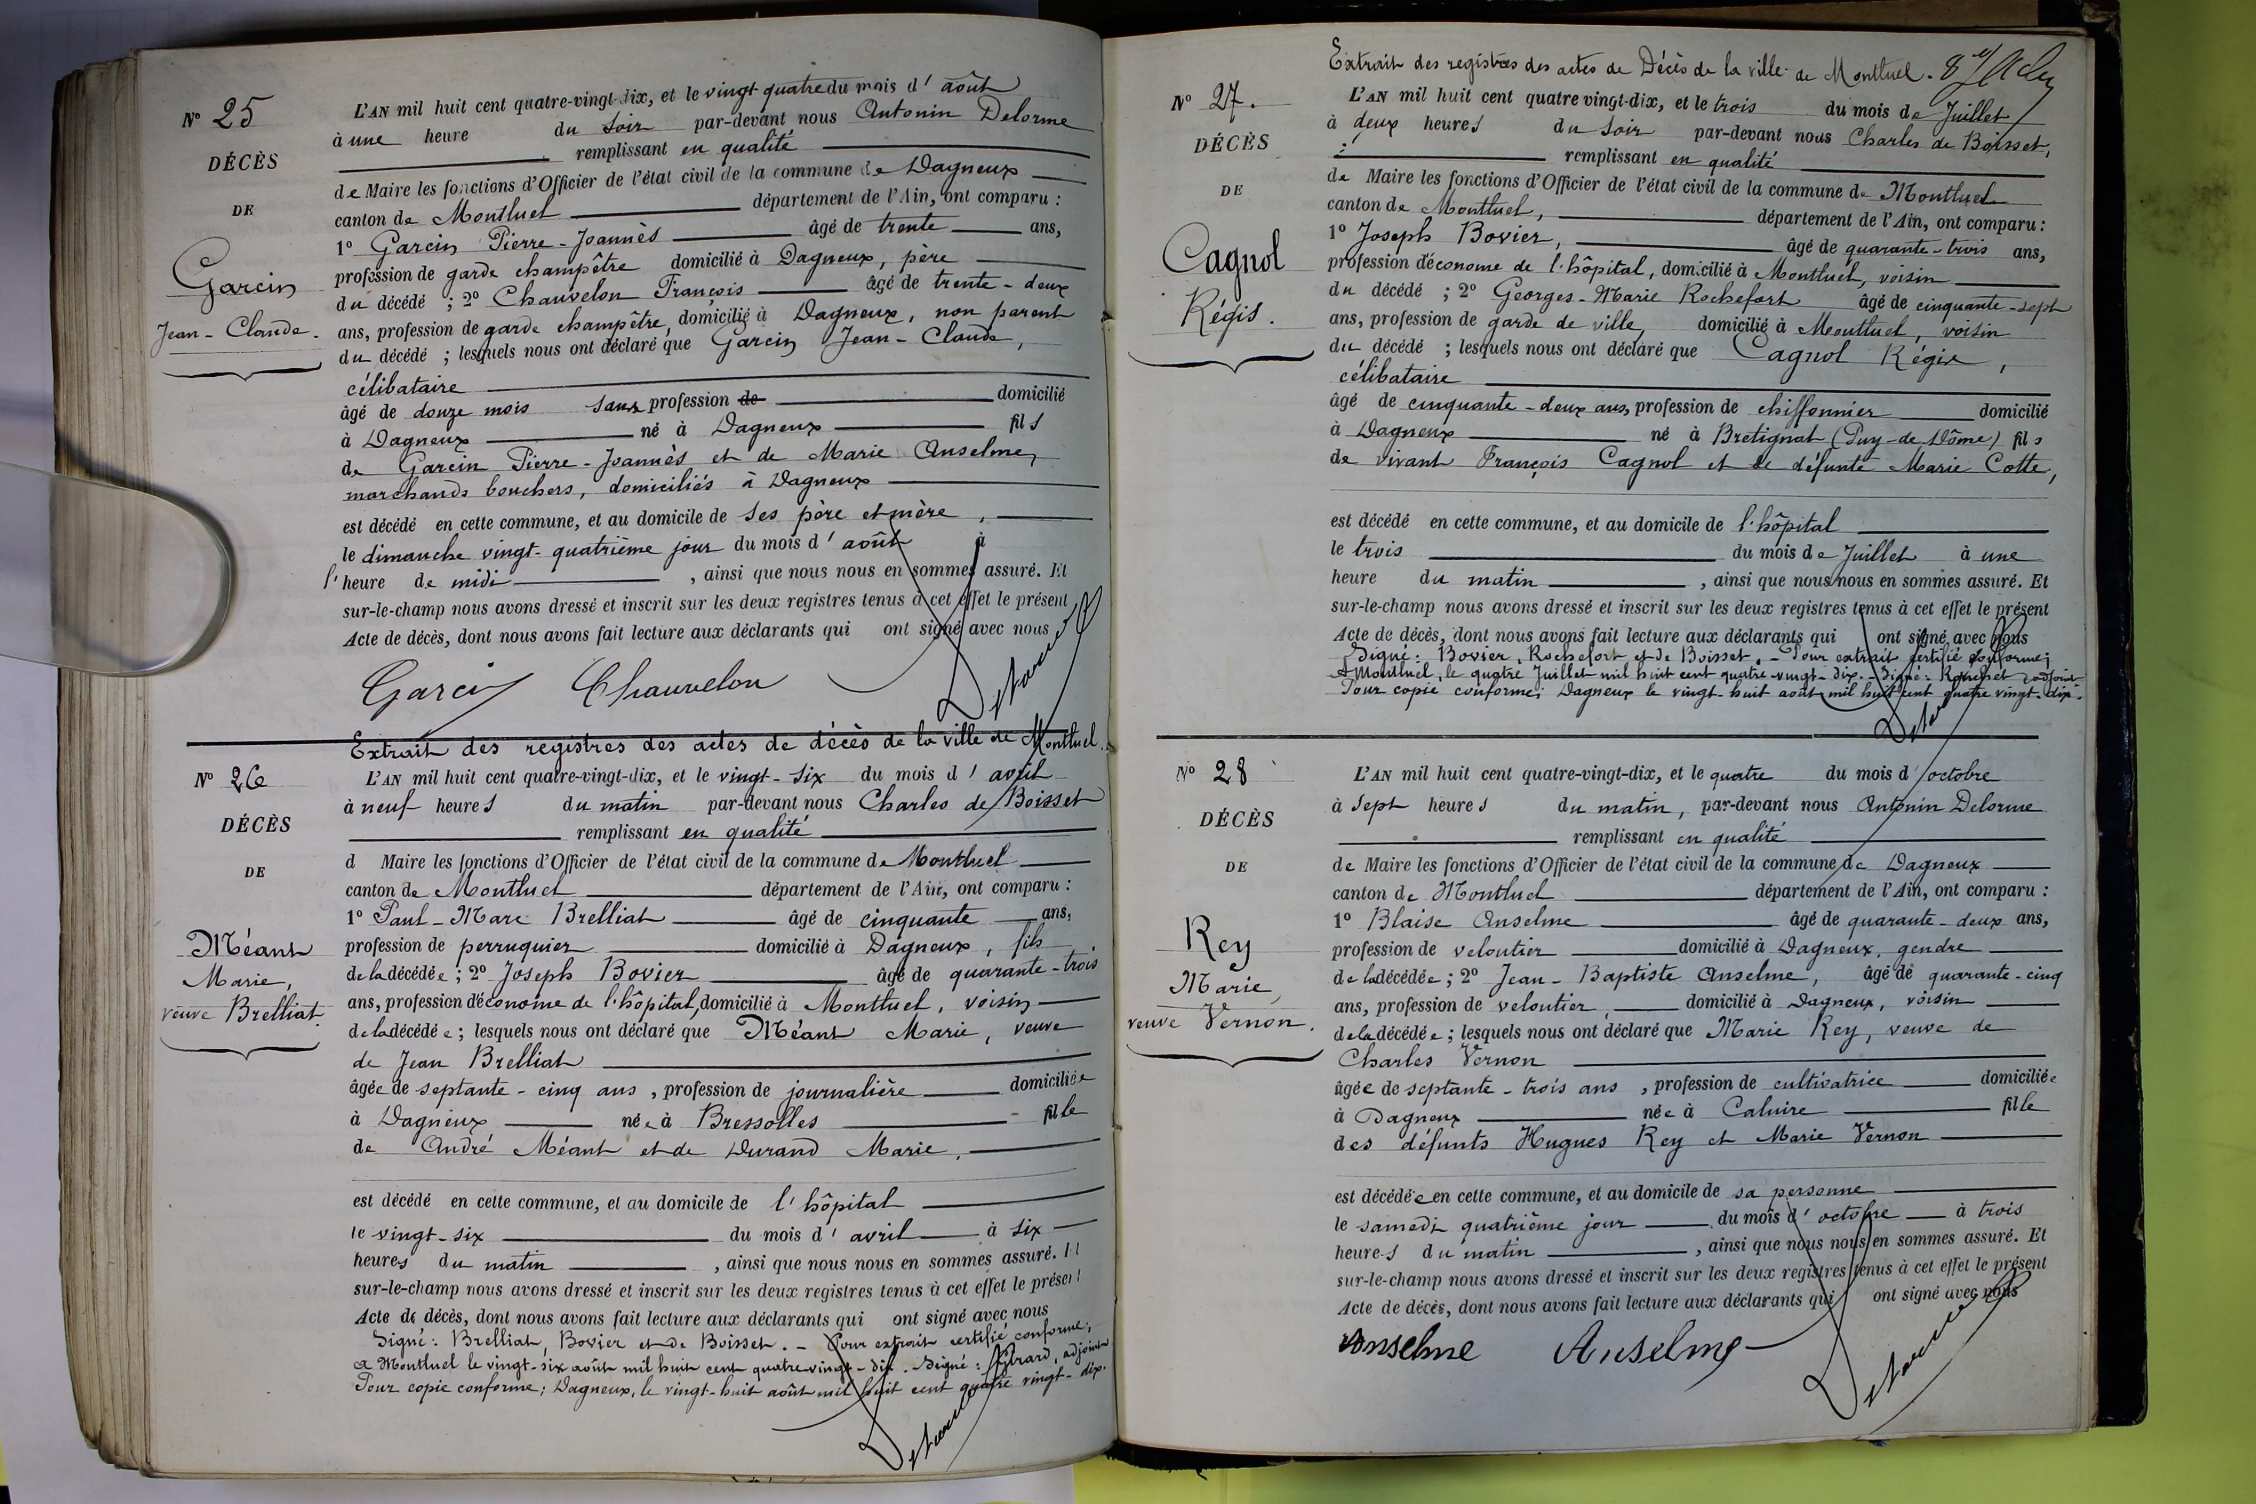 N° 25
DÉCÈS
DE
Garcin
Jean-Claude.
L'AN mil huit cent quatre-vingt-dix, et le vingt quatre du mois d'août
à une heure du soir par-devant nous Antonin Delorme
remplissant en qualité
de Maire les fonctions d'Officier de l'état civil de la commune de Dagneux
canton de Montluel département de l'Ain, ont comparu :
1° Garcin Pierre-Joannès âgé de trente ans,
profession de garde champêtre domicilié à Dagneux, père
du décédé ; 2° Chauvelon François âgé de trente-deux
ans, profession de garde champêtre, domicilié à Dagneux, non parent
du décédé ; lesquels nous ont déclaré que Garcin Jean-Claude,
célibataire
âgé de douze mois sans profession de domicilié
à Dagneux né à Dagneux fils
de Garcin Pierre-Joannès et de Marie Anselme,
marchands bouchers, domiciliés à Dagneux
est décédé en cette commune, et au domicile de ses père et mère,
le dimanche vingt-quatrième jour du mois d'août à
l'heure de midi, ainsi que nous nous en sommes assuré. Et
sur-le-champ nous avons dressé et inscrit sur les deux registres tenus à cet effet le présent
Acte de décès, dont nous avons fait lecture aux déclarants qui ont signé avec nous
Garcin Chauvelon Delorme
N° 26
DÉCÈS
DE
Méant
Marie,
veuve Brelliat.
Extrait des registres des actes de décès de la ville de Montluel.
L'AN mil huit cent quatre-vingt-dix, et le vingt-six du mois d'avril
à neuf heures du matin par-devant nous Charles de Boisset
remplissant en qualité
d Maire les fonctions d'Officier de l'état civil de la commune de Montluel
canton de Montluel département de l'Ain, ont comparu :
1° Paul-Marc Brelliat âgé de cinquante ans,
profession de perruquier domicilié à Dagneux, fils
de la décédée ; 2° Joseph Bovier âgé de quarante-trois
ans, profession d'économe de l'hôpital, domicilié à Montluel, voisin
de la décédée ; lesquels nous ont déclaré que Méant Marie, veuve
de Jean Brelliat
âgée de septante-cinq ans, profession de journalière domiciliée
à Dagneux née à Bressolles fille
de André Méant et de Durand Marie,
est décédé en cette commune, et au domicile de l'hôpital
le vingt-six du mois d'avril à six
heures du matin, ainsi que nous nous en sommes assuré. Et
sur-le-champ nous avons dressé et inscrit sur les deux registres tenus à cet effet le présent
Acte de décès, dont nous avons fait lecture aux déclarants qui ont signé avec nous
Signé : Brelliat, Bovier et de Boisset. - Pour extrait certifié conforme ;
a Montluel le vingt-six août mil huit cent quatre-vingt-dix. Signé : adjoint
Pour copie conforme ; Dagneux, le vingt-huit août mil huit cent quatre vingt-dix.
Delorme
N° 27.
DÉCÈS
DE
Cagnol
Régis.
Extrait des registres des actes de Décès de la ville de Montluel.
L'AN mil huit cent quatre vingt-dix, et le trois du mois de Juillet
à deux heures du soir par-devant nous Charles de Boisset,
remplissant en qualité
de Maire les fonctions d'Officier de l'état civil de la commune de Montluel
canton de Montluel, département de l'Ain, ont comparu :
1° Joseph Bovier, âgé de quarante-trois ans,
profession d'économe de l'hôpital, domicilié à Montluel, voisin
du décédé ; 2° Georges-Marie Rochefort âgé de cinquante-sept
ans, profession de garde de ville, domicilié à Montluel, voisin
du décédé ; lesquels nous ont déclaré que Cagnol Régis,
célibataire
âgé de cinquante-deux ans, profession de chiffonnier domicilié
à Dagneux né à Bretignat (Puy-de-Dôme) fils
de vivant François Cagnol et de défunte Marie Cotte,
est décédé en cette commune, et au domicile de l'hôpital
le trois du mois de Juillet à une
heure du matin, ainsi que nous nous en sommes assuré. Et
sur-le-champ nous avons dressé et inscrit sur les deux registres tenus à cet effet le présent
Acte de décès, dont nous avons fait lecture aux déclarants qui ont signé avec nous
Signé : Bovier, Rochefort et de Boisset. - Pour extrait certifié conforme ;
A Montluel, le quatre Juillet mil huit cent quatre-vingt-dix. - Signé : adjoint
Pour copie conforme ; Dagneux le vingt-huit août mil huit cent quatre vingt-dix.
Delorme
N° 28
DÉCÈS
DE
Rey
Marie,
veuve Vernon.
L'AN mil huit cent quatre-vingt-dix, et le quatre du mois d'octobre
à sept heures du matin, par-devant nous Antonin Delorme
remplissant en qualité
de Maire les fonctions d'Officier de l'état civil de la commune de Dagneux
canton de Montluel département de l'Ain, ont comparu :
1° Blaise Anselme âgé de quarante-deux ans,
profession de veloutier domicilié à Dagneux, gendre
de la décédée ; 2° Jean-Baptiste Anselme, âgé de quarante-cinq
ans, profession de veloutier, domicilié à Dagneux, voisin
de la décédée ; lesquels nous ont déclaré que Marie Rey, veuve de
Charles Vernon
âgée de septante-trois ans, profession de cultivatrice domiciliée
à Dagneux née à Caluire fille
des défunts Hugues Rey et Marie Vernon
est décédée en cette commune, et au domicile de sa personne
le samedi quatrième jour du mois d'octobre à trois
heures du matin, ainsi que nous nous en sommes assuré. Et
sur-le-champ nous avons dressé et inscrit sur les deux registres tenus à cet effet le présent
Acte de décès, dont nous avons fait lecture aux déclarants qui ont signé avec nous
Anselme Anselme Delorme